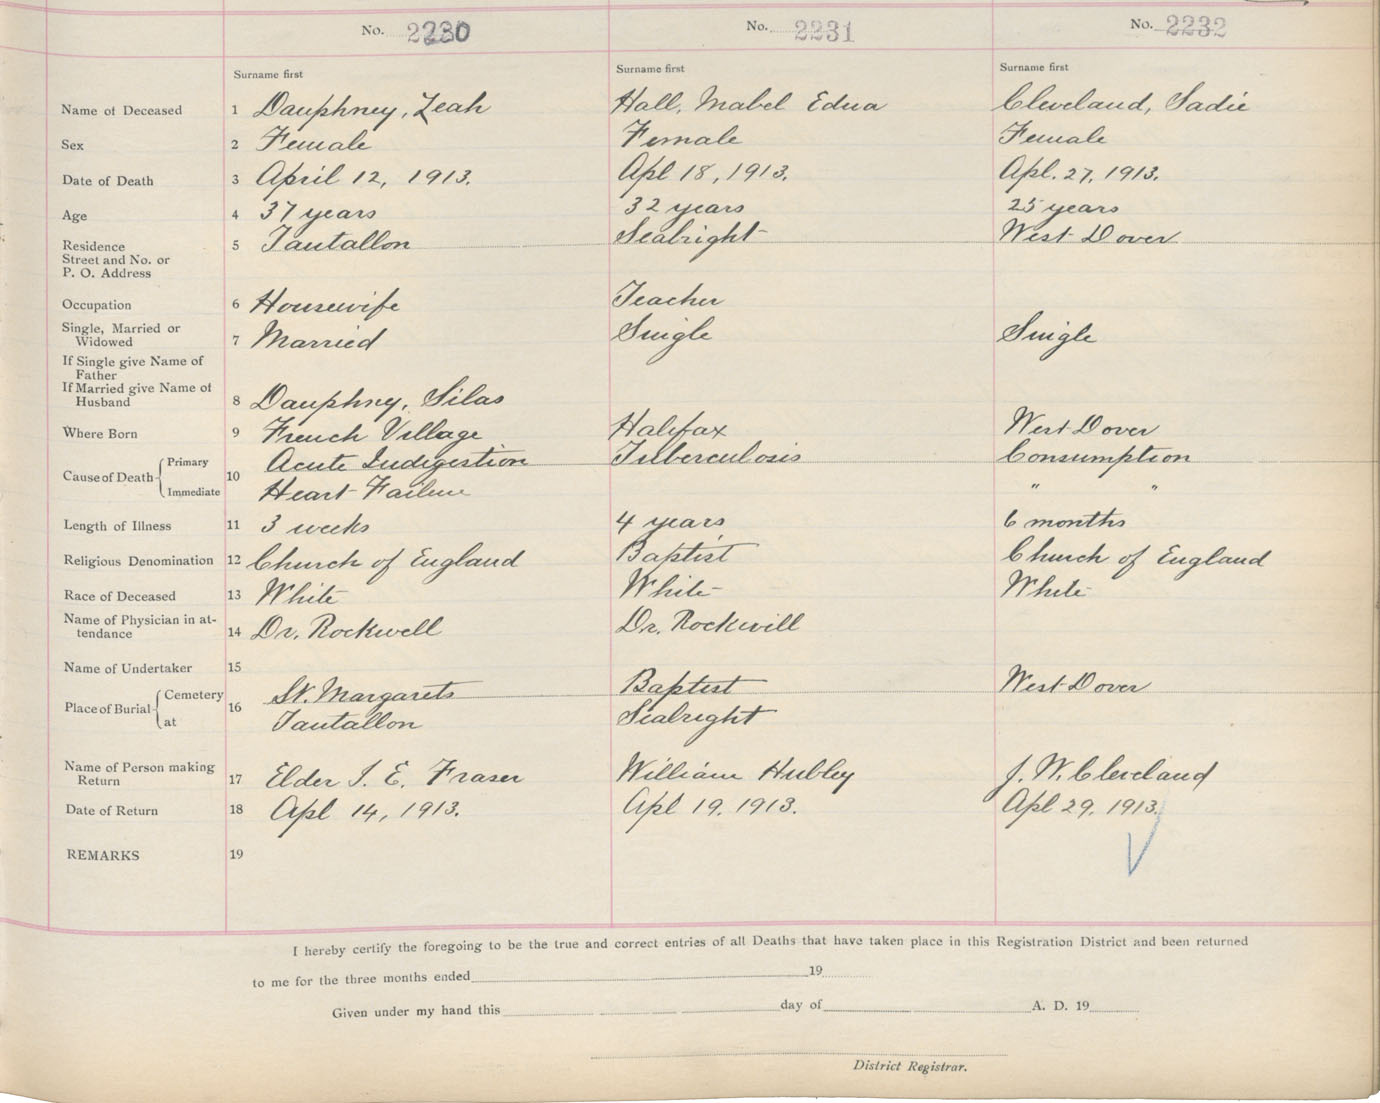 No. 2230 No. 2231 No. 2232
Surname first Surname first Surname first
Name of Deceased 1 Dauphney, Leah Hall, Mabel Edna Cleveland, Sadie
Sex 2 Female Female Female
Date of Death 3 April 12, 1913. Apl 18, 1913. Apl. 27, 1913.
Age 4 37 years 32 years 25 years
Residence 5 Tantallon Seabright West Dover
Street and No. or
P. O. Address
Occupation 6 Housewife Teacher
Single, Married or
Widowed 7 Married Single Single
If Single give Name of
Father
If Married give Name of
Husband 8 Dauphney, Silas
Where Born 9 French Village Halifax West Dover
Cause of Death Primary 10 Acute Indigestion Tuberculosis Consumption
Immediate Heart Failure " "
Length of Illness 11 3 weeks 4 years 6 months
Religious Denomination 12 Church of England Baptist Church of England
Race of Deceased 13 White White White
Name of Physician in at-
tendance 14 Dr. Rockwell Dr. Rockwill
Name of Undertaker 15
Place of Burial Cemetery 16 St. Margarets Baptist West Dover
at Tantallon Seabright
Name of Person making
Return 17 Elder I. E. Fraser William Hubley J. W. Cleveland
Date of Return 18 Apl 14, 1913. Apl 19, 1913. Apl 29, 1913.
REMARKS 19
I hereby certify the foregoing to be the true and correct entries of all Deaths that have taken place in this Registration District and been returned
to me for the three months ended 19
Given under my hand this day of A. D. 19
District Registrar.